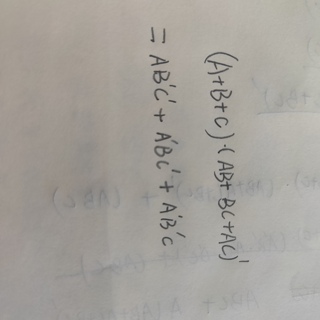 (A+B+C)·(AB+BC+AC)'
= AB'C' + A'BC' + A'B'C